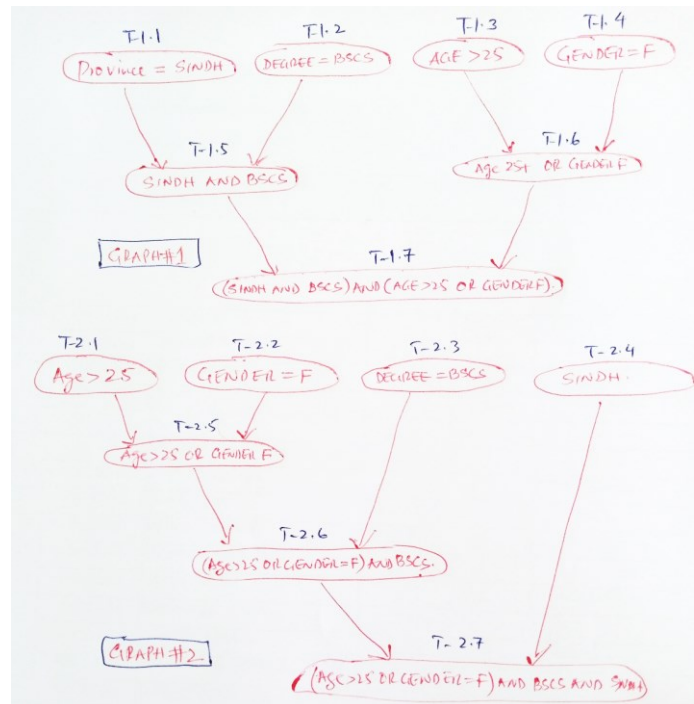 T-1.1 T-1.2 T-1.3 T-1.4
Province = SINDH DEGREE = BSCS AGE >25 GENDER = F
T-1.5 T-1.6
SINDH AND BSCS Age 25+ OR GENDER F
GRAPH#1 T-1.7
(SINDH AND BSCS) AND (AGE >25 OR GENDER F).
T-2.1 T-2.2 T-2.3 T-2.4
Age > 25 GENDER = F DEGREE = BSCS SINDH.
T-2.5
Age >25 OR GENDER F
T-2.6
(Age >25 OR GENDER = F) AND BSCS.
GRAPH #2 T-2.7
(Age >25 OR GENDER = F) AND BSCS AND SINDH)